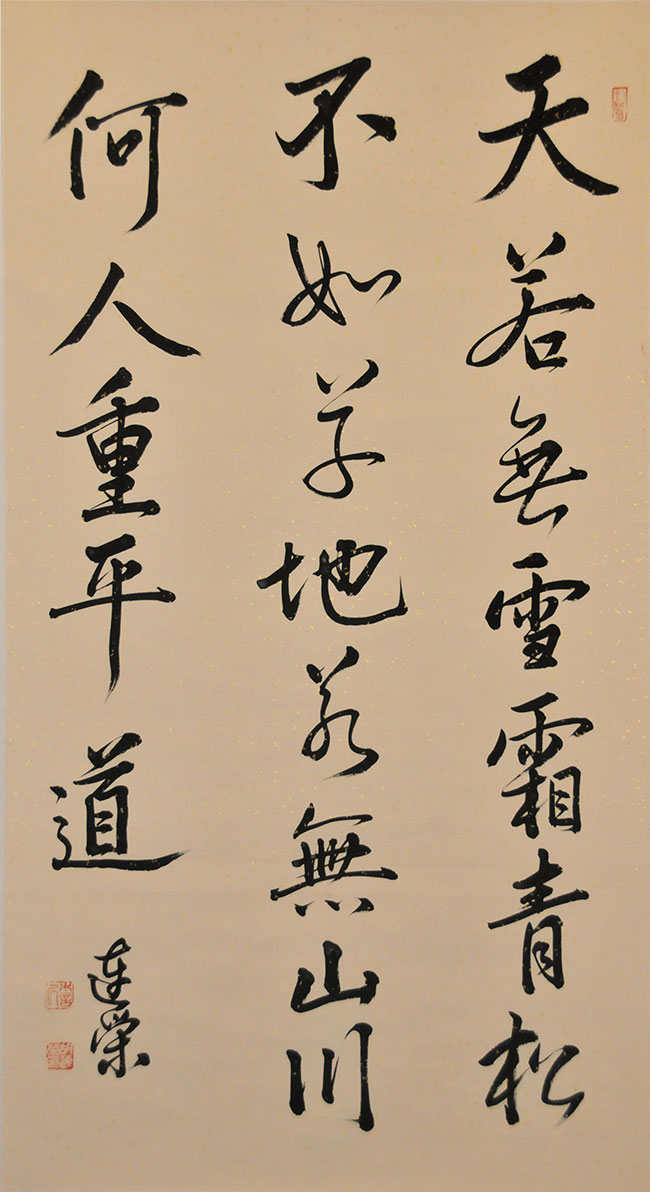 天若無雪霜青松
不如草地若無山川
何人重平道
連榮